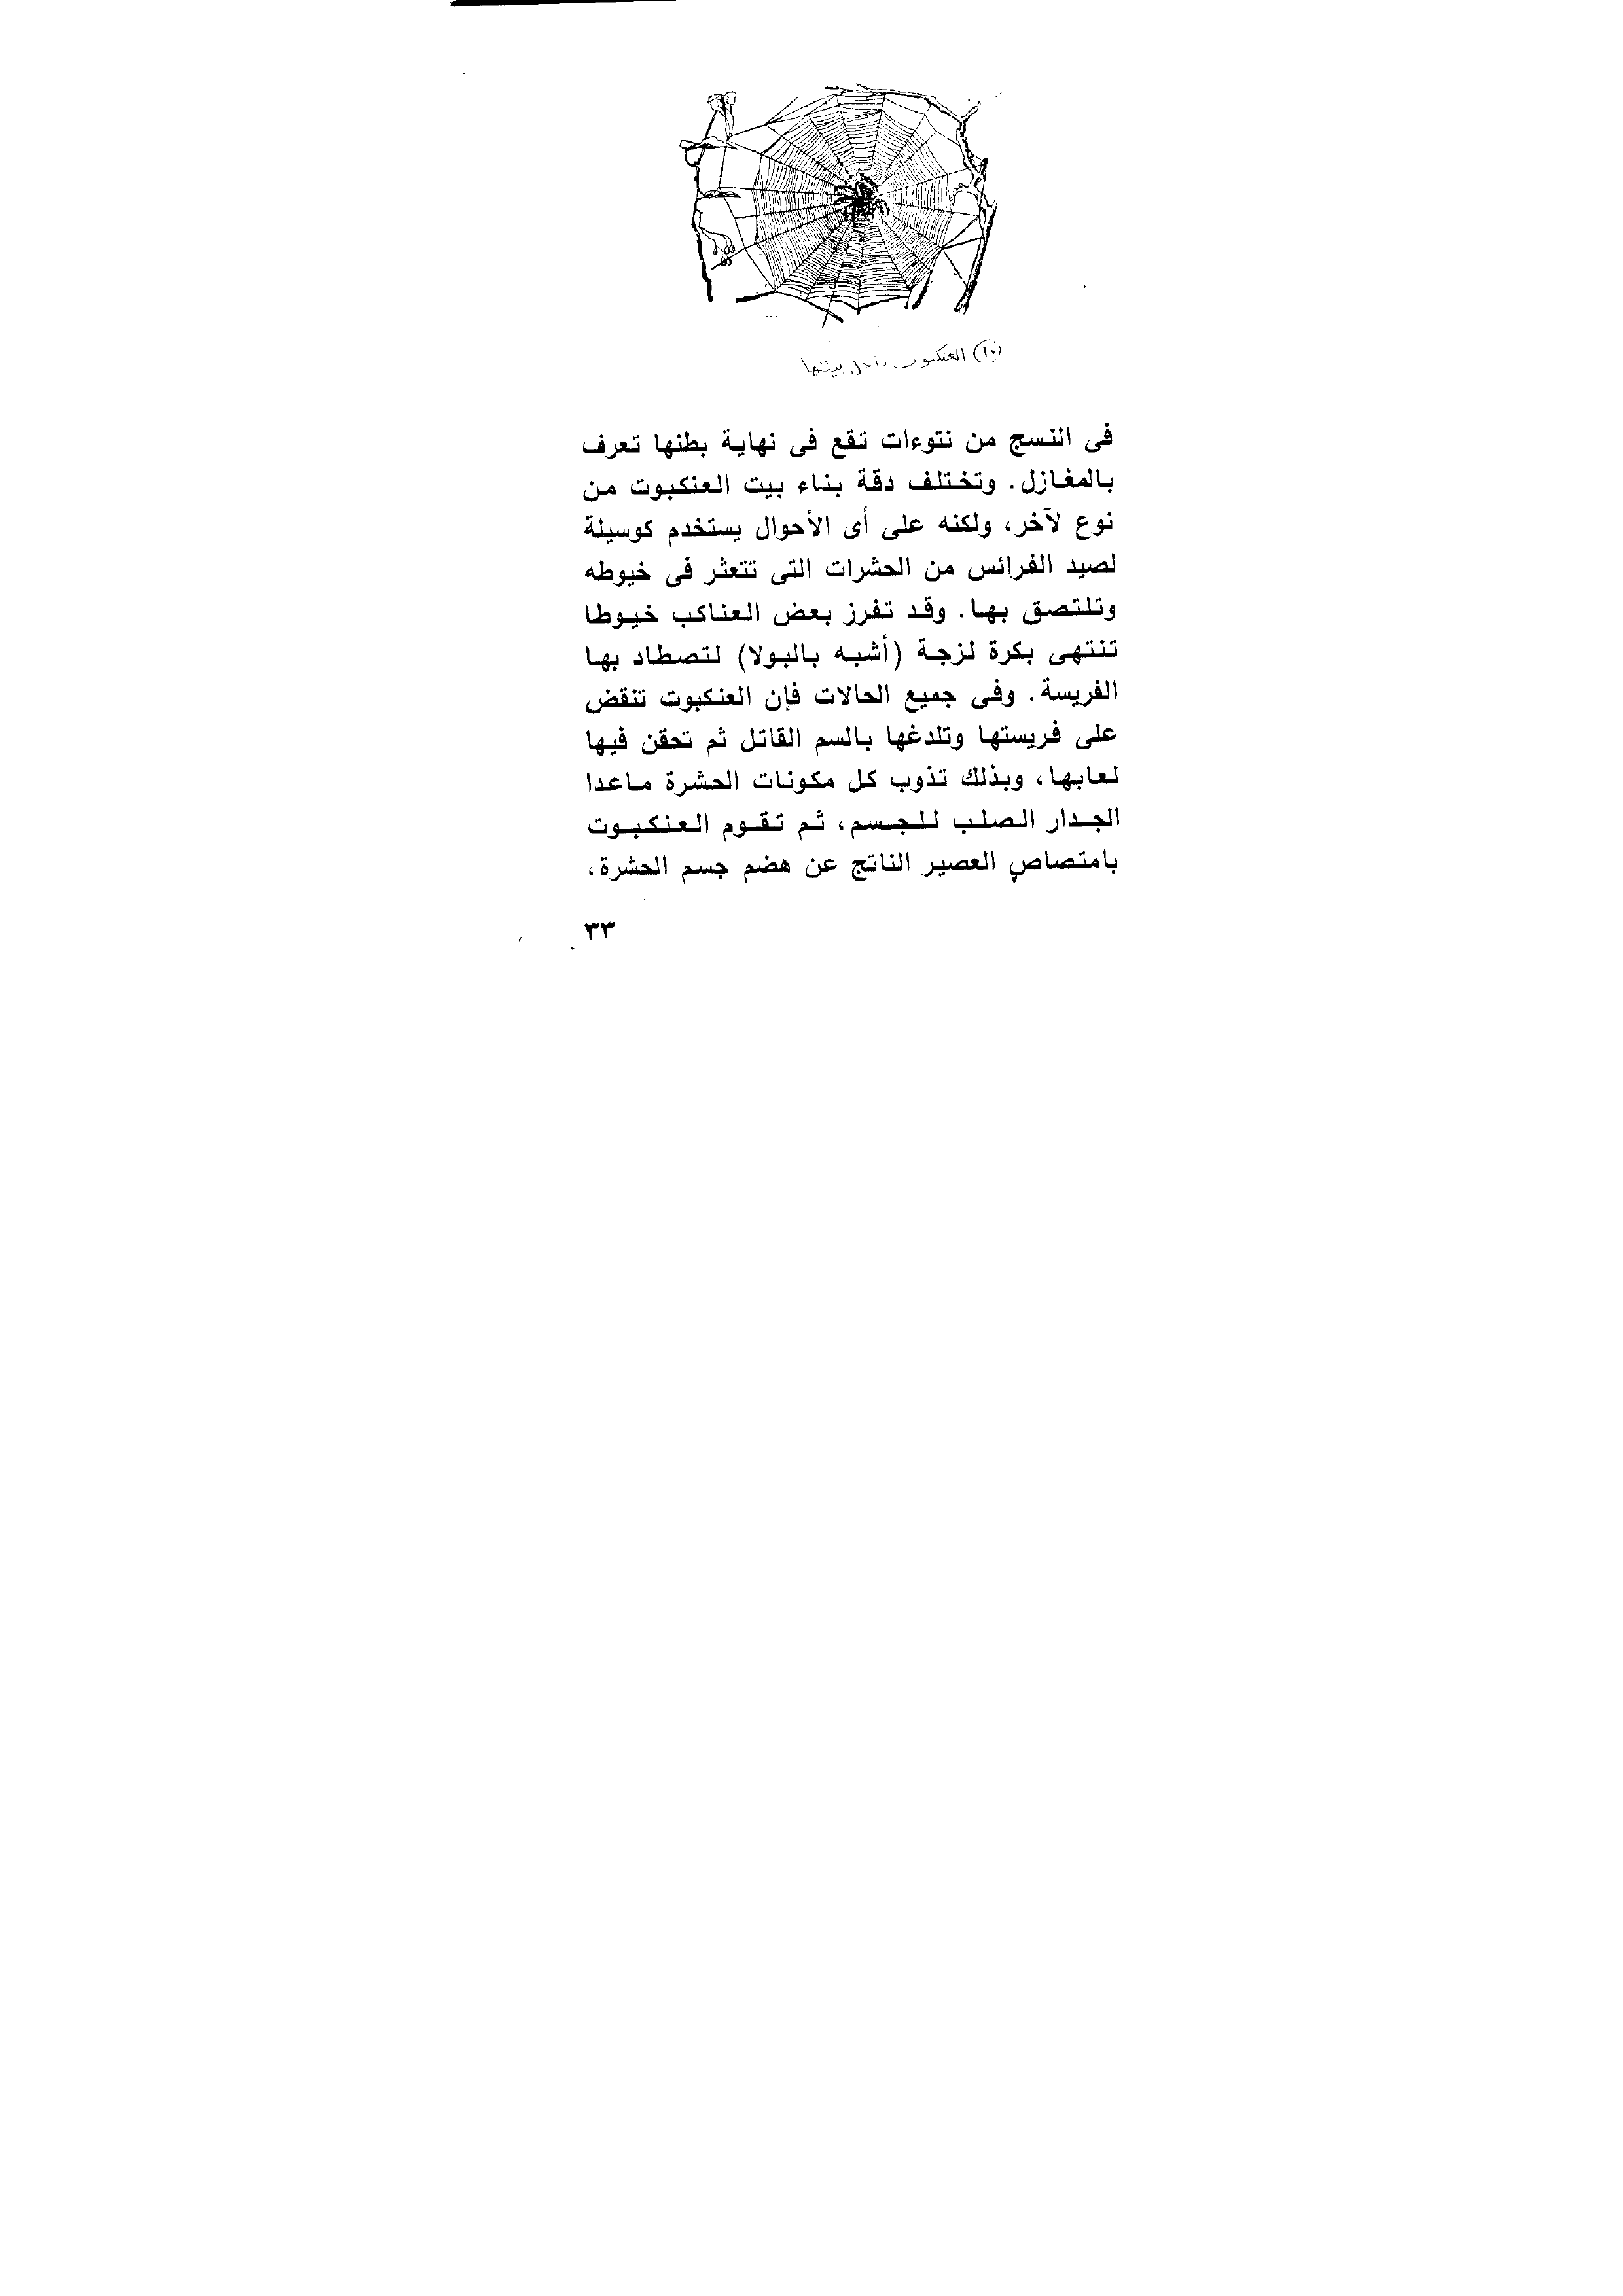 ١٠ العنكبوت داخل بيتها
فى النسج من نتوءات تقع فى نهاية بطنها تعرف
بالمغازل. وتختلف دقة بناء بيت العنكبوت من
نوع لآخر، ولكنه على أى الأحوال يستخدم كوسيلة
لصيد الفرائس من الحشرات التى تتعثر فى خيوطه
وتلتصق بها. وقد تفرز بعض العناكب خيوطا
تنتهى بكرة لزجة (أشبه بالبولا) لتصطاد بها
الفريسة. وفى جميع الحالات فإن العنكبوت تنقض
على فريستها وتلدغها بالسم القاتل ثم تحقن فيها
لعابها، وبذلك تذوب كل مكونات الحشرة ماعدا
الجدار الصلب للجسم، ثم تقوم العنكبوت
بامتصاص العصير الناتج عن هضم جسم الحشرة،
٣٣